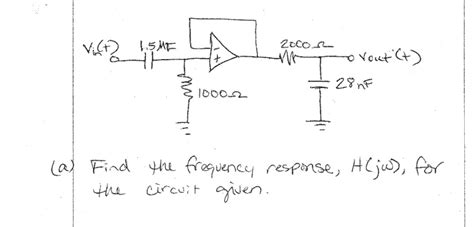 Vin(t) 1.5µF 2000Ω Vout(t)
28nF
1000Ω
(a) Find the frequency response, H(jω), for
the circuit given.